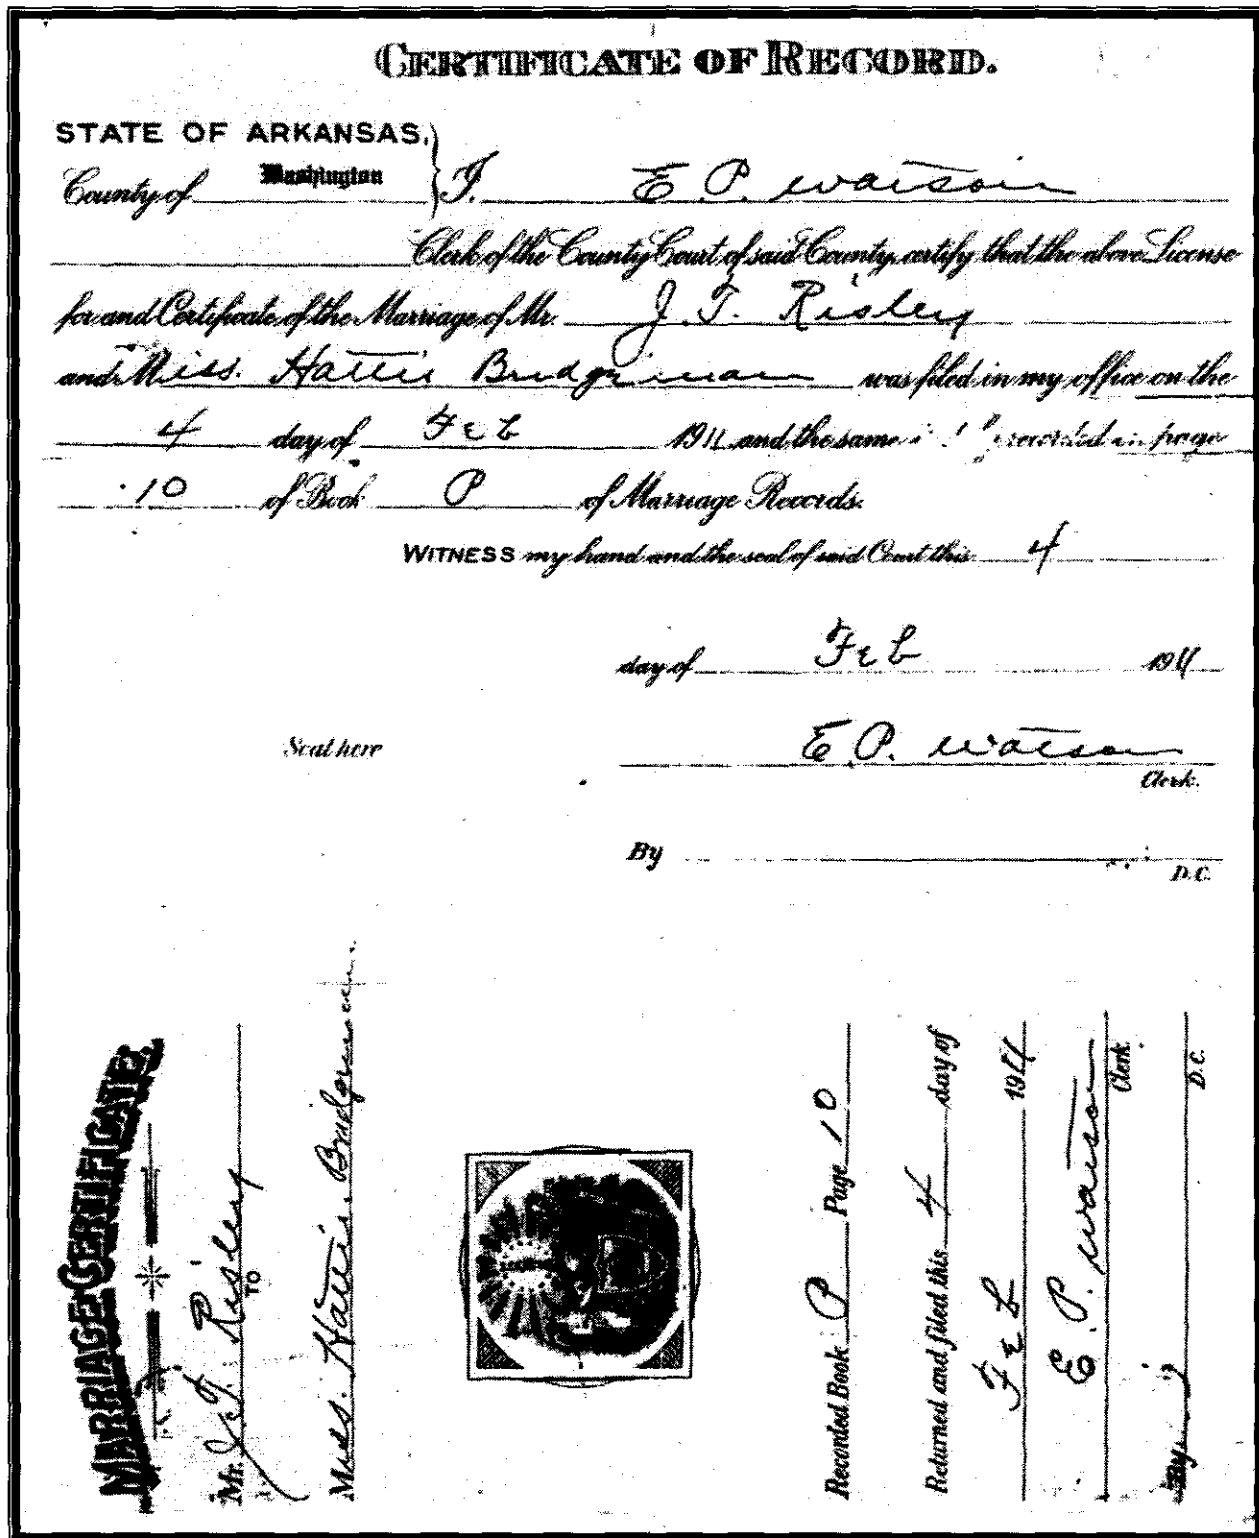 CERTIFICATE OF RECORD.
STATE OF ARKANSAS,
County of Washington } I, E. P. Watson
Clerk of the County Court of said County, certify that the above License
for and Certificate of the Marriage of Mr. J. T. Risley
and Miss. Hattie Bridgeman was filed in my office on the
4 day of Feb 1911 and the same recorded in page
10 of Book P of Marriage Records.
WITNESS my hand and the seal of said Court this 4
day of Feb 1911
Seal here
E. P. Watson
Clerk.
By
D.C.
MARRIAGE CERTIFICATE
Mr. J. T. Risley
TO
Miss. Hattie Bridgeman.
Recorded Book P Page 10
Returned and filed this 4 day of
Feb 1911
E. P. Watson
Clerk
By D.C.